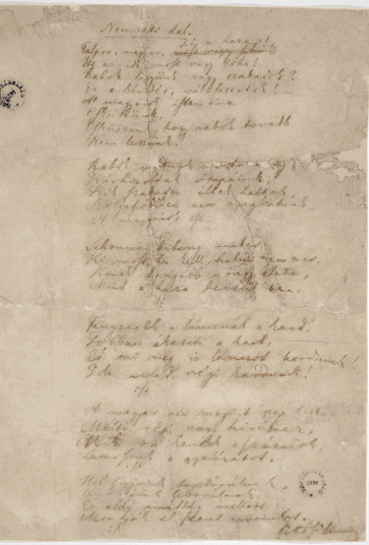 Nemzeti dal.
Talpra magyar, hí a haza!
Itt az idő, most vagy soha!
Rabok legyünk vagy szabadok?
Ez a kérdés, válasszatok! –
A magyarok istenére
Esküszünk,
Esküszünk, hogy rabok tovább
Nem leszünk.
Rabok voltunk mostanáig,
Kárhozottak ősapáink,
Kik szabadon éltek haltak,
Szolgaföldben nem nyughatnak.
A magyarok
Sehonnai bitang ember,
Ki most, ha kell, halni nem mer,
Kinek drágább rongy élete,
Mint a haza becsülete.
Fényesebb a láncnál a kard,
Jobban ékesíti a kart,
És mi még is láncot hordunk!
Ide veled, régi kardunk!
A magyar név megint szép lesz,
Méltó régi nagy hiréhez,
Mit rá kentek a századok,
Lemossuk a gyalázatot.
Hol sírjaink domborulnak,
Unokáink leborulnak,
És áldó imádság mellett
Mondják el szent neveinket.
Petőfi Sándor